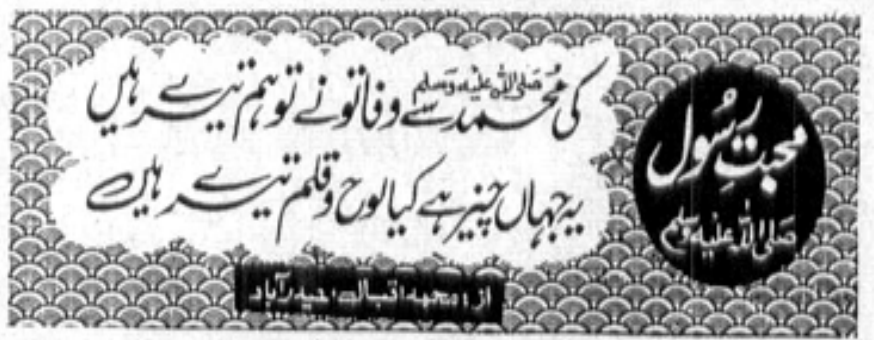 محبتِ رسُول
صلی اللہ علیہ وسلم
کی مُحمد صلی اللہ علیہ وسلم سے وفا تو نے تو ہم تیرے ہیں
یہ جہاں چیز ہے کیا لوح و قلم تیرے ہیں
از: محمد اقبال، حیدرآباد